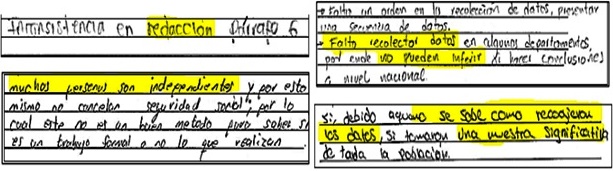 Inconsistencia en redacción Párrafo 6
muchas personas son independientes y por esto
mismo no cancelan seguridad social; por lo
cual este no es un buen metodo para saber si
es un trabajo formal o no lo que realizan.
• Falta un orden en la recolección de datos, presentar
una secuencia de datos.
• Falta recolectar datos en algunos departamentos,
por ende no pueden inferir ni hacer conclusiones
a nivel nacional.
si, debido aque no se sabe como recogieron
los datos, si tomaron una muestra significativa
de toda la población.